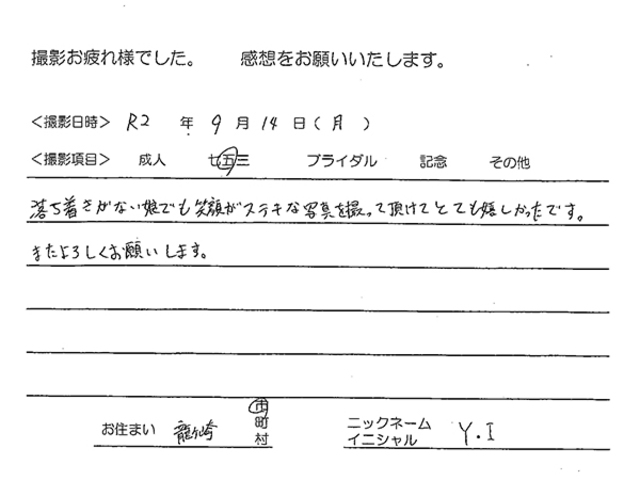 撮影お疲れ様でした。　感想をお願いいたします。
＜撮影日時＞ R2 年 9 月 14 日（月）
＜撮影項目＞ 成人 七五三 ブライダル 記念 その他
落ち着きがない娘でも笑顔がステキな写真を撮って頂けてとても嬉しかったです。
またよろしくお願いします。
お住まい 龍ケ崎 市 町 村 ニックネーム イニシャル Y.I